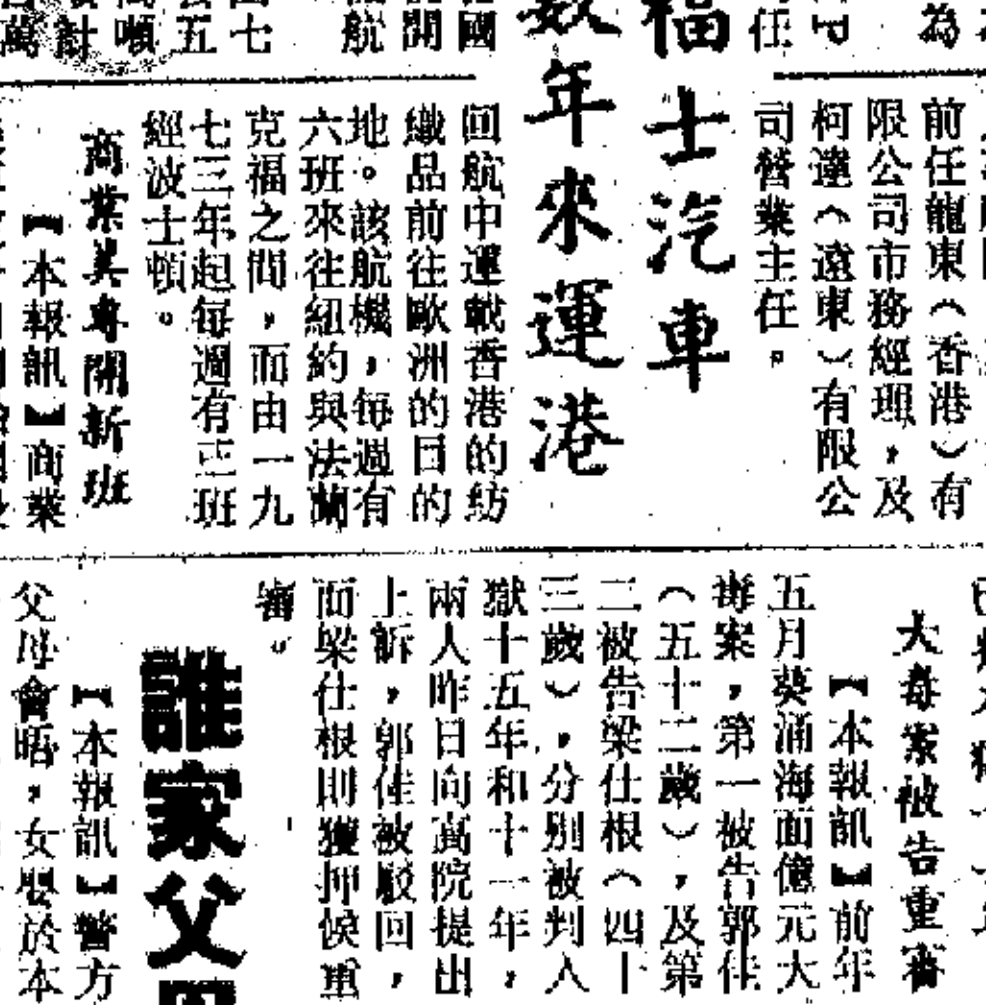 為
任
前任龍東（香港）有
限公司市務經理，及
柯達（遠東）有限公
司營業主任。
福士汽車
數年來運港
國
開
航
回航中運載香港的紡
織品前往歐洲的目的
地。該航機，每週有
六班來往紐約與法蘭
克福之間，而由一九
七三年起每週有三班
經波士頓。
商業美專開新班
【本報訊】商業
七
五
噸
計
萬
大毒案被告重審
【本報訊】前年
五月葵涌海面億元大
毒案，第一被告郭佳
（五十二歲），及第
二被告梁仕根（四十
三歲），分別被判入
獄十五年和十一年，
兩人昨日向高院提出
上訴，郭佳被駁回，
而梁仕根則獲押候重
審。
誰家父
【本報訊】警方
父母會晤，女嬰於本